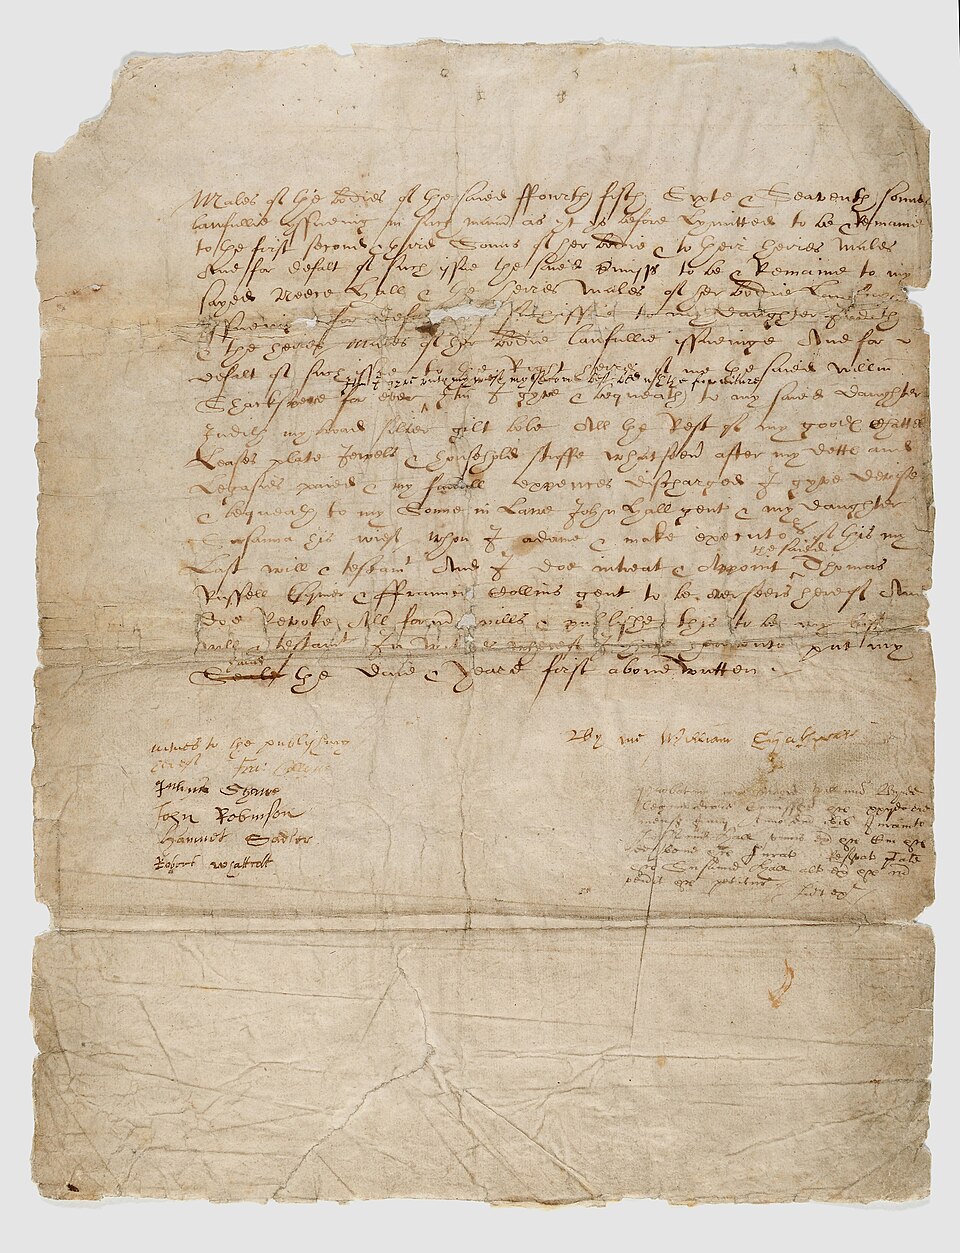 Males of the bodies of the saied ffourth fifth Sixte & Seaventh sonnes
lawfullie yssueing in such manner as yt ys before Lymitted to be & Remaine
to the first second & third Sonns of her bodie & to their heires Males
And for defalt of such issue the saied premisss to be & Remaine to my
sayed Neece Hall & the heires Males of her bodie Lawfully
yssueing for defalt issue to my daughter Judith
& the heires Males of her bodie lawfullie issueinge And for
defalt of such issue to the Right heires of me the saied Willm
Itm I gyve unto my wief my second best bed wth the furniture
Shackspere for ever Itm I gyve & bequeath to my saied daughter
Judith my broad silver gilt bole All the Rest of my goods Chattels
Leases plate Jewels & household stuffe whatsoever after my detts and
Legasies paied & my funerall expences discharged I gyve devise
& bequeath to my Sonne in Lawe John Hall gent & my daughter
Susanna his wief whom I ordaine & make executors of this my
the saied
Last will & testamt And I doe intreat & Appoint Thomas
Russell Esquier & ffrauncis Collins gent to be overseers hereof And
doe Revoke All former wills & publishe this to be my last
will & testamt In witnes whereof I have hereunto put my
hand
Seale the daie & Yeare first above written
witnes to the publishing
hereof Fra: Collyns
Julyus Shawe
John Robinson
Hamnet Sadler
Robert Whattcott
By me William Shakspeare